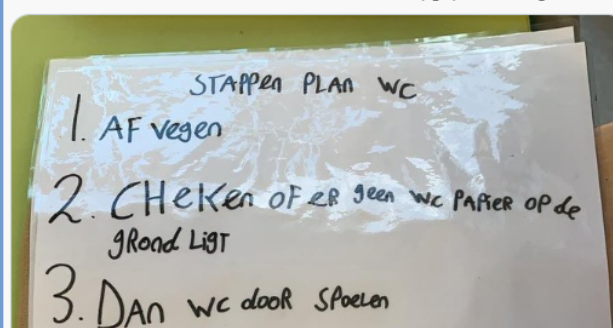 STAPPen PLAn WC
1. AF vegen
2. CHeKen OF eR geen WC PAPieR OP de
gRond LigT
3. DAn WC dooR SPoeLen